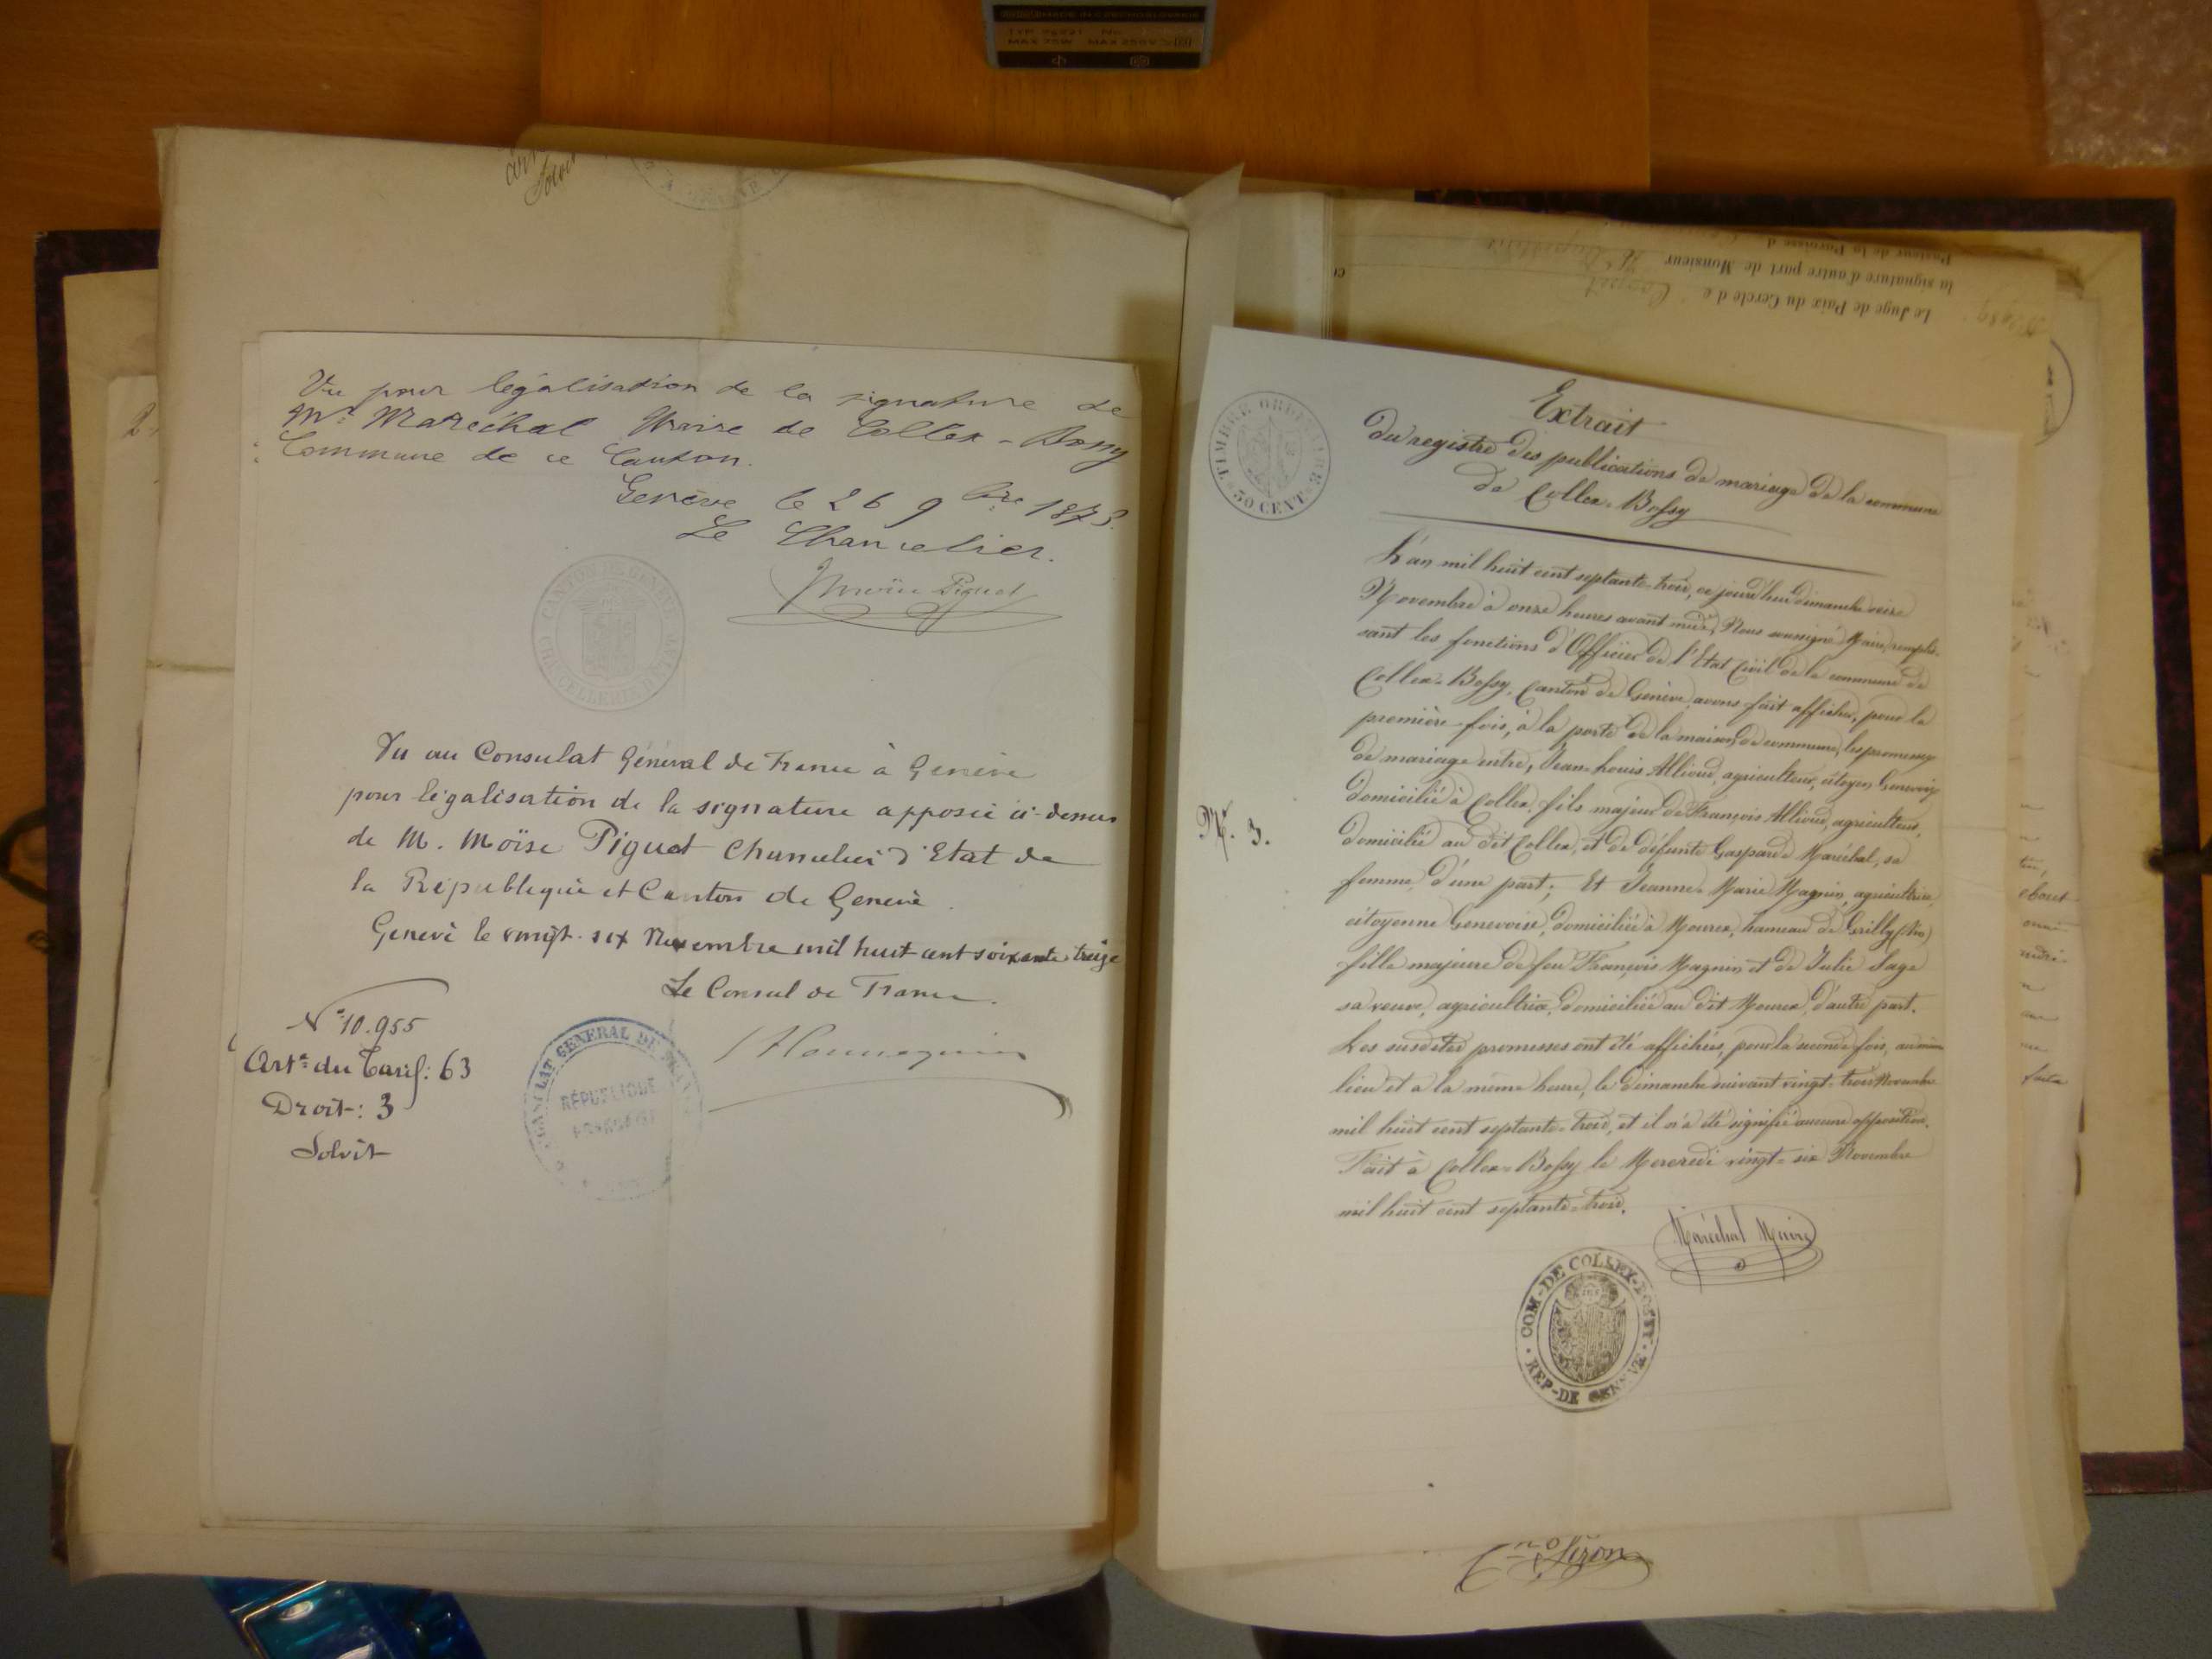 MAX 75W MAX 250V
Solvit
Le Juge de Paix du Cercle de Coppet
la signature d'autre part de Monsieur
Pasteur de la Paroisse d
Vu pour légalisation de la signature de
Mr Maréchal Maire de Collex-Bossy
Commune de ce Canton.
Genève le 26 9bre 1873.
Le Chancelier.
Moïse Piguet
CANTON DE GENÈVE
CHANCELLERIE D'ETAT
Vu au Consulat Général de France à Genève
pour légalisation de la signature apposée ci-dessus
de M. Moïse Piguet Chancelier d'Etat de
la République et Canton de Genève.
Genève le vingt-six Novembre mil huit cent soixante treize
Le Consul de France.
N° 10.955
Arte du Tarif: 63
Droit: 3
Solvit
CONSULAT GENERAL DE FRANCE
RÉPUBLIQUE
FRANÇAISE
TIMBRE ORDINAIRE
50 CENT
Extrait
du registre des publications de mariage de la commune
de Collex-Bossy
L'an mil huit cent septante-trois, ce jourd'hui dimanche seize
Novembre à onze heures avant midi, Nous soussigné Maire, remplis-
sant les fonctions d'Officier de l'Etat Civil de la commune de
Collex-Bossy, Canton de Genève, avons fait afficher, pour la
première fois, à la porte de la maison de commune, les promesses
de mariage entre, Jean-Louis Allioud, agriculteur, citoyen Genevois
domicilié à Collex, fils majeur de François Allioud, agriculteur,
domicilié au dit Collex, et de défunte Gasparde Maréchal, sa
femme, d'une part; Et Jeanne-Marie Magnin, agricultrice,
citoyenne Genevoise, domiciliée à Mourex, hameau de Grilly (Ain)
fille majeure de feu François Magnin et de Julie Sage
sa veuve, agricultrice, domiciliée au dit Mourex, d'autre part.
Les susdites promesses ont été affichées, pour la seconde fois, au même
lieu et à la même heure, le dimanche suivant vingt-trois Novembre
mil huit cent septante-trois, et il n'a été signifié aucune opposition.
Fait à Collex-Bossy le Mercredi vingt-six Novembre
mil huit cent septante-trois.
N°. 3.
Maréchal Maire
COM-DE COLLEX-BOSSY
REP-DE GENEVE